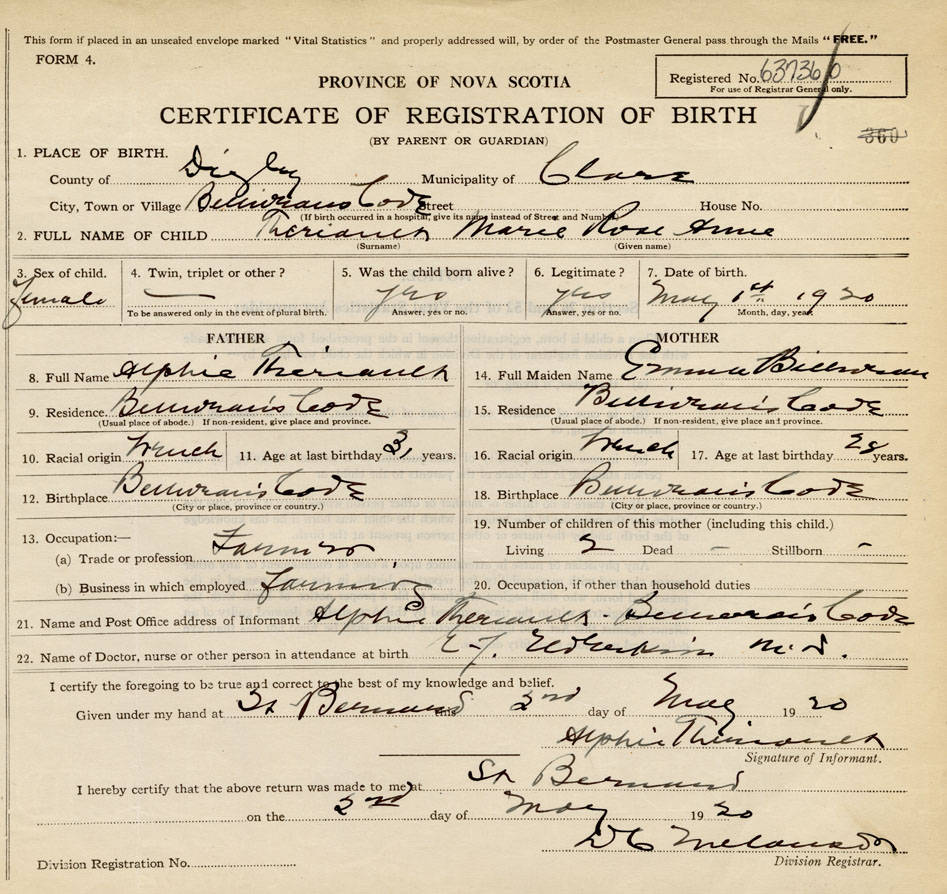 This form if placed in an unsealed envelope marked "Vital Statistics" and properly addressed will, by order of the Postmaster General pass through the Mails "FREE."
FORM 4.
PROVINCE OF NOVA SCOTIA
Registered No. 637360
For use of Registrar General only.
CERTIFICATE OF REGISTRATION OF BIRTH
(BY PARENT OR GUARDIAN)
360
1. PLACE OF BIRTH.
County of Digby Municipality of Clare
City, Town or Village Belliveaus Cove Street House No.
(If birth occurred in a hospital, give its name instead of Street and Number)
2. FULL NAME OF CHILD Theriault Marie Rose Anne
(Surname) (Given name)
3. Sex of child. 4. Twin, triplet or other? 5. Was the child born alive? 6. Legitimate? 7. Date of birth.
female — yes yes May 1st 1920
To be answered only in the event of plural birth. Answer, yes or no. Answer, yes or no. Month, day, year.
FATHER MOTHER
8. Full Name Alphie Theriault 14. Full Maiden Name Emma Belliveau
9. Residence. Belliveau's Cove 15. Residence Belliveau's Cove
(Usual place of abode.) If non-resident, give place and province. (Usual place of abode.) If non-resident, give place and province.
10. Racial origin French 11. Age at last birthday 31 years. 16. Racial origin French 17. Age at last birthday 28 years.
12. Birthplace Belliveau's Cove 18. Birthplace Belliveau's Cove
(City or place, province or country.) (City or place, province or country.)
13. Occupation:— 19. Number of children of this mother (including this child.)
(a) Trade or profession Farmer Living 2 Dead - Stillborn -
(b) Business in which employed farming 20. Occupation, if other than household duties
21. Name and Post Office address of Informant Alphie Theriault - Belliveau's Cove
22. Name of Doctor, nurse or other person in attendance at birth M.D.
I certify the foregoing to be true and correct to the best of my knowledge and belief.
Given under my hand at St Bernard this 2nd day of May 1920
Alphie Theriault
Signature of Informant.
I hereby certify that the above return was made to me at St Bernard
on the 2nd day of May 1920
Melanson
Division Registration No. Division Registrar.